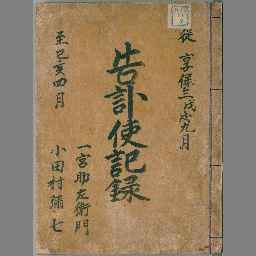 從 享保三戊戌九月
告訃使記録
至己亥四月
一宮助左衛門
小田村彌七